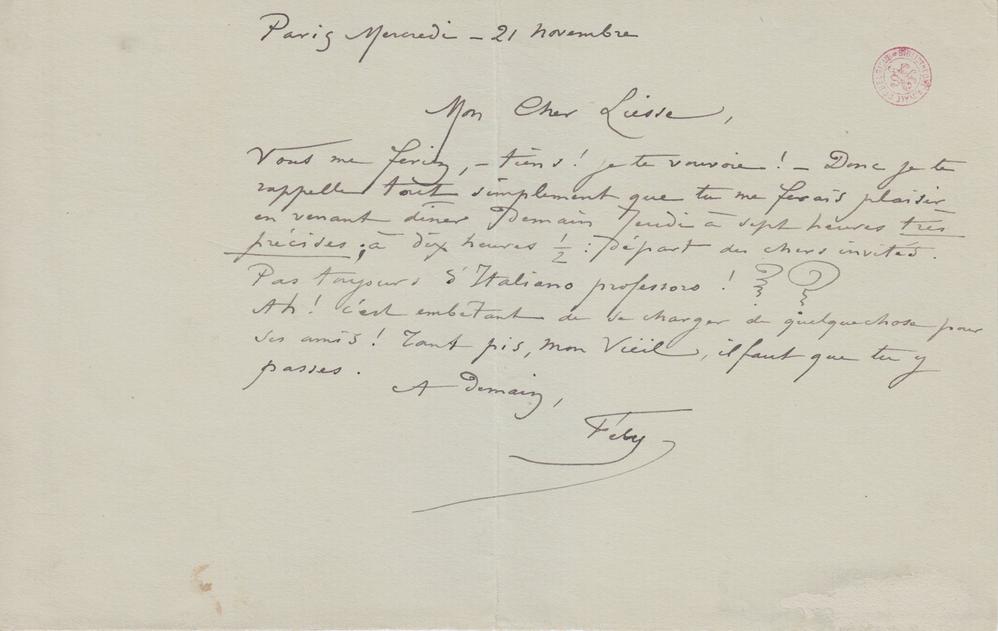 Paris Mercredi – 21 novembre
Mon Cher Liesse,
Vous me feriez, – tiens! je te vouvoie! – Donc je te
rappelle tout simplement que tu me ferais plaisir
en venant dîner Demain Jeudi à sept heures très
précises; à dix heures 1/2 : départ des chers invités.
Pas toujours d'Italiano professoro! ? ?
Ah! c'est embêtant de se charger de quelquechose pour
ses amis! Tant pis, mon Vieil, il faut que tu y
passes.
A Demain,